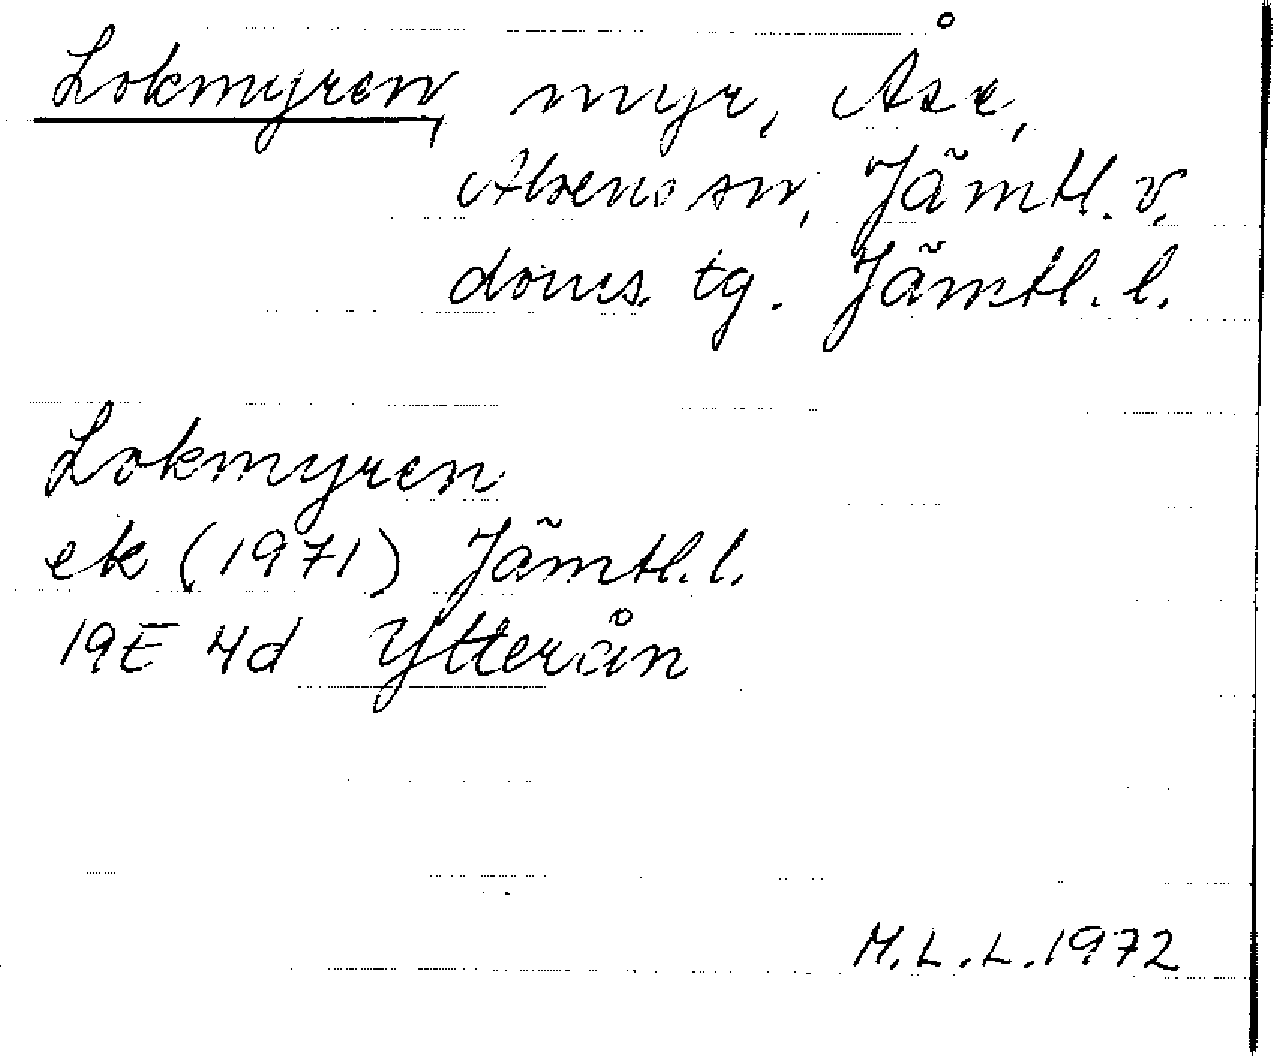 Lokmyren, myr, Åse,
Alsens sn, Jämtl. v.
doms. tg. Jämtl. l.
Lokmyren
ek (1971) Jämtl. l.
19E 4d Ytterån
M.L.L. 1972